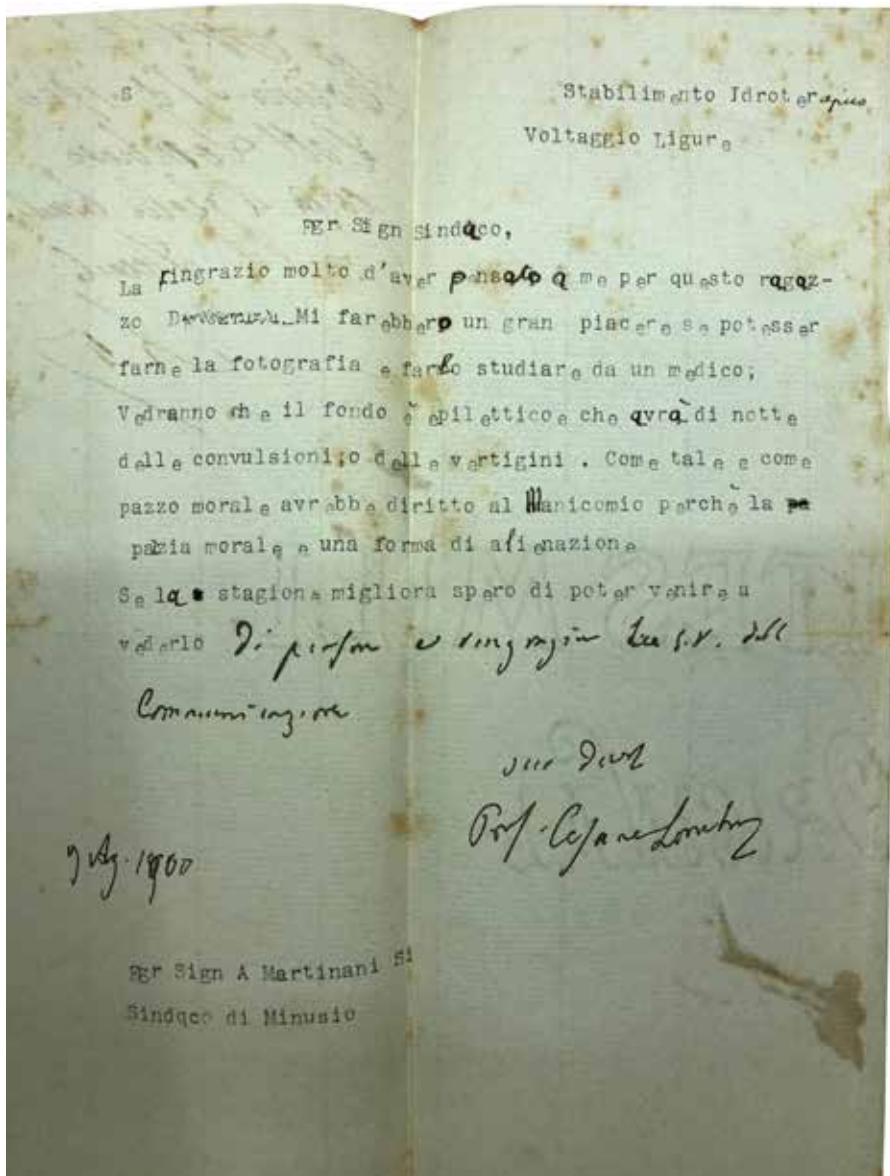 S
Stabilimento Idroterapico
Voltaggio Ligure
Egr Sign Sindaco,
La ringrazio molto d'aver pensato a me per questo ragaz-
zo Mi farebbero un gran piacere se potesser
farne la fotografia e farlo studiare da un medico;
Vedranno che il fondo è epilettico e che avrà di notte
delle convulsioni;o delle vertigini . Come tale e come
pazzo morale avrebbe diritto al Manicomio perchè la pa
pazzia morale e una forma di alienazione
Se la stagione migliora spero di poter venire a
vederlo Di persona e ringrazio La S.V. della
Communicazione
suo Devot
Prof. Cesare Lombroso
9 Ag. 1900
Egr Sign A Martinani Si
Sindqco di Minusio